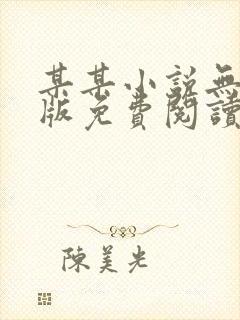 某某小說無
版免費閱讀
陳美光